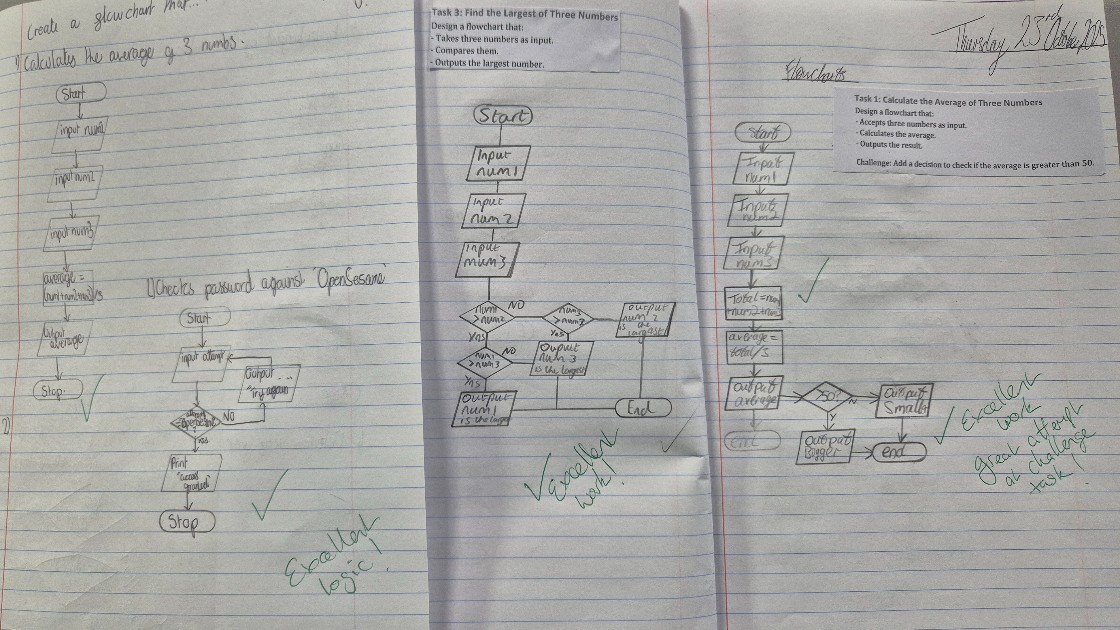 Create a flowchart that...
1) Calculates the average of 3 numbs.
Start
input num1
input num2
input num3
average =
average
Stop
1) Checks password against "OpenSesame"
Start
input attempt
Output ...
"Try again"
NO
Yes
Print
"access
granted"
Stop
2)
Excellent
logic!
Task 3: Find the Largest of Three Numbers
Design a flowchart that:
- Takes three numbers as input.
- Compares them.
- Outputs the largest number.
Start
Input
num1
Input
num2
Input
num3
num1
>num2
NO
num3
>num2
Output
num 2
is the
largest
Yes
Yes
num1
>num3
NO
Ouput
num 3
is the largest
Yes
Output
num1
is the larges
End
Excellent
work!
Thursday 23rd October 2025
Flowcharts
Task 1: Calculate the Average of Three Numbers
Design a flowchart that:
- Accepts three numbers as input.
- Calculates the average.
- Outputs the result.
Challenge: Add a decision to check if the average is greater than 50.
Start
Input
num1
Input
num2
Input
num3
Total=num
+num2+num
average=
total/3
Output
average
>50?
N
Output
Smaller
Y
End
Output
Bigger
end
Excellent
work
great attempt
at challenge
task!